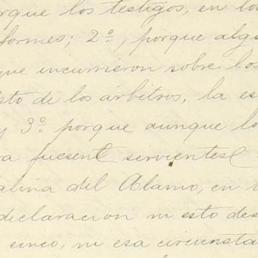 rque los testigos, en lo
formes; 2º, porque alg
que incurrieron sobre los
sto de los árbitros, la es
y 3º porque aunque lo
a fuesent sirvientes
alina del Alamo, en
declaracion ni esto des
cinco, ni esa circunsta